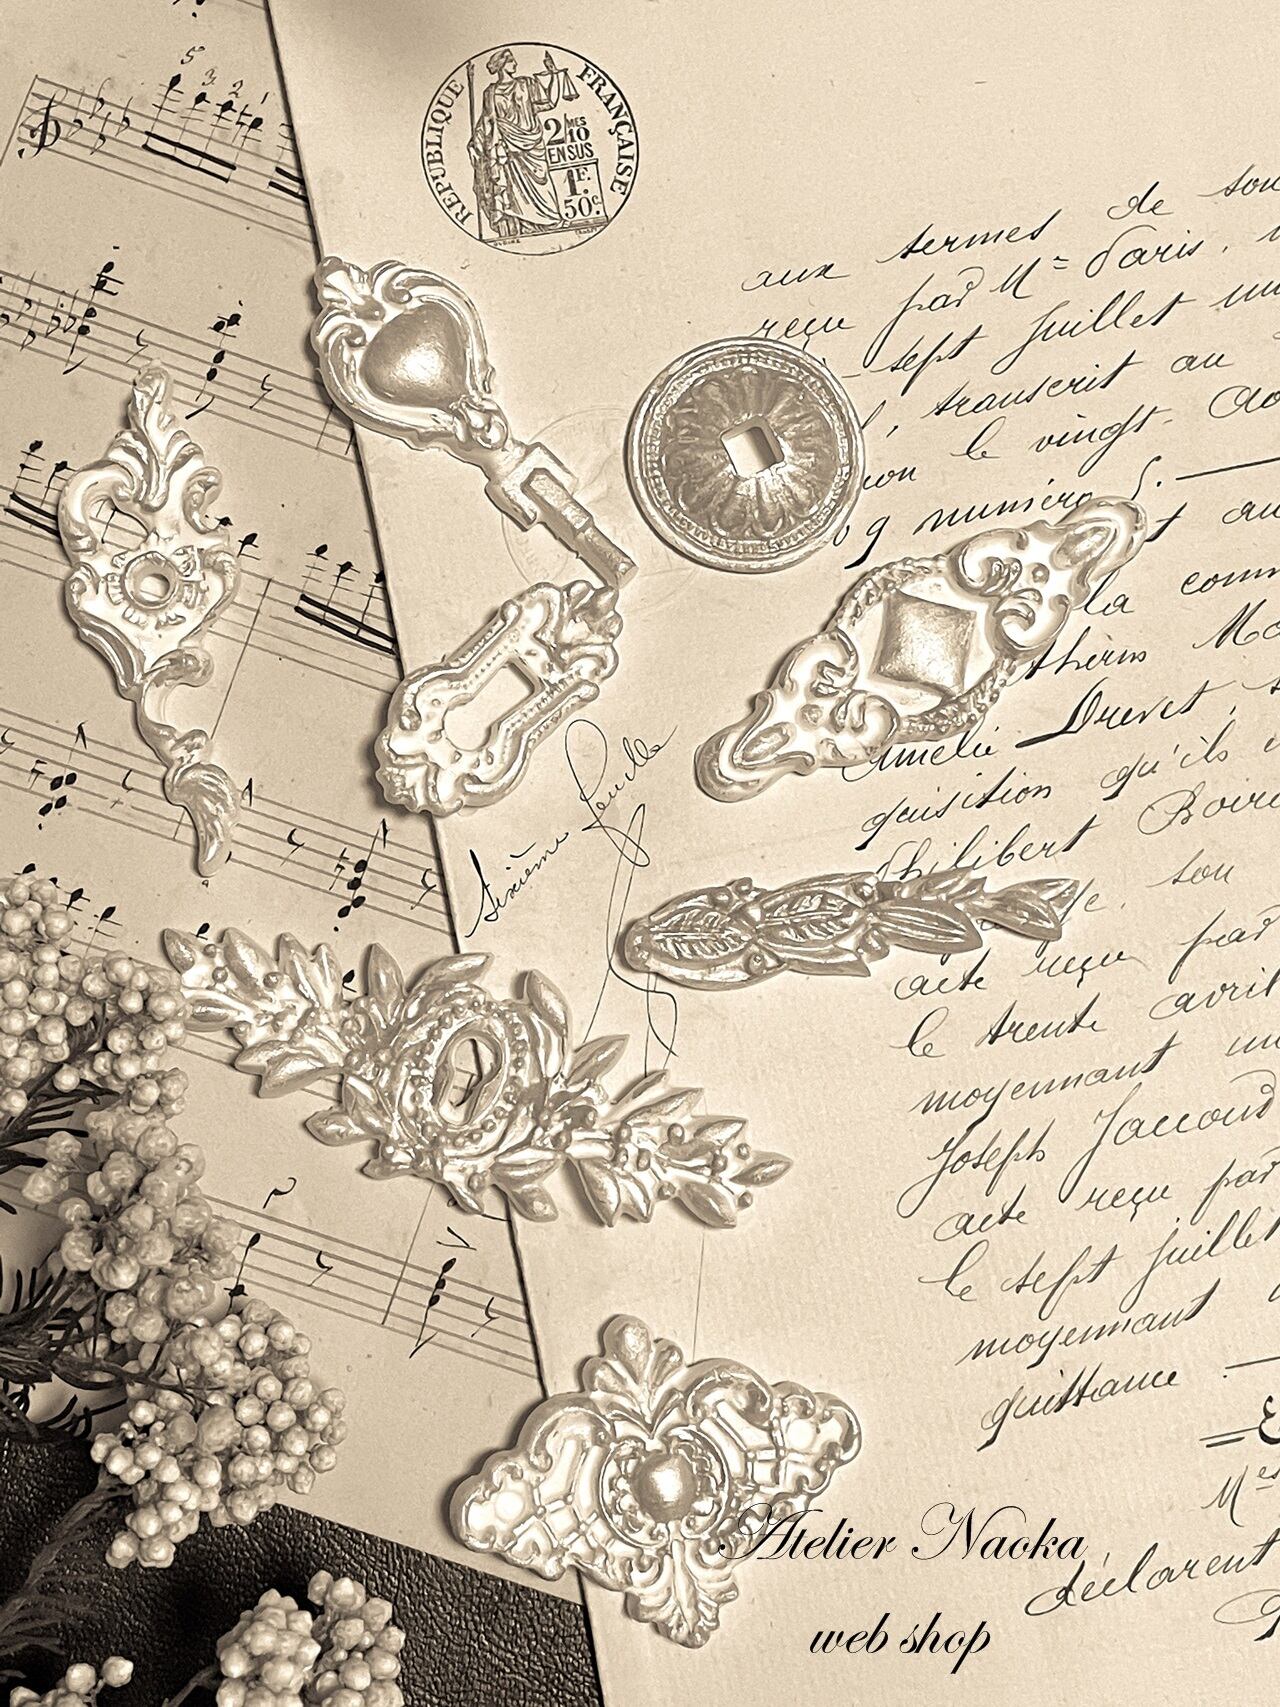 REPUBLIQUE FRANÇAISE
2/MES
10
EN SUS
1F.
50c.
5 3 2 1
aux termes de son
reçu par Me Paris,
sept Juillet
transcrit au
le vingt
9 numéro 5.
la
Amélie Drevet,
quisition qu'ils
Philibert
son
acte reçu par
le trente avril
moyennant un
Joseph Jaccoud
acte reçu par
le sept juillet
moyennant
quittance
Mes
déclarent
Sixième feuille
Atelier Naoka
web shop